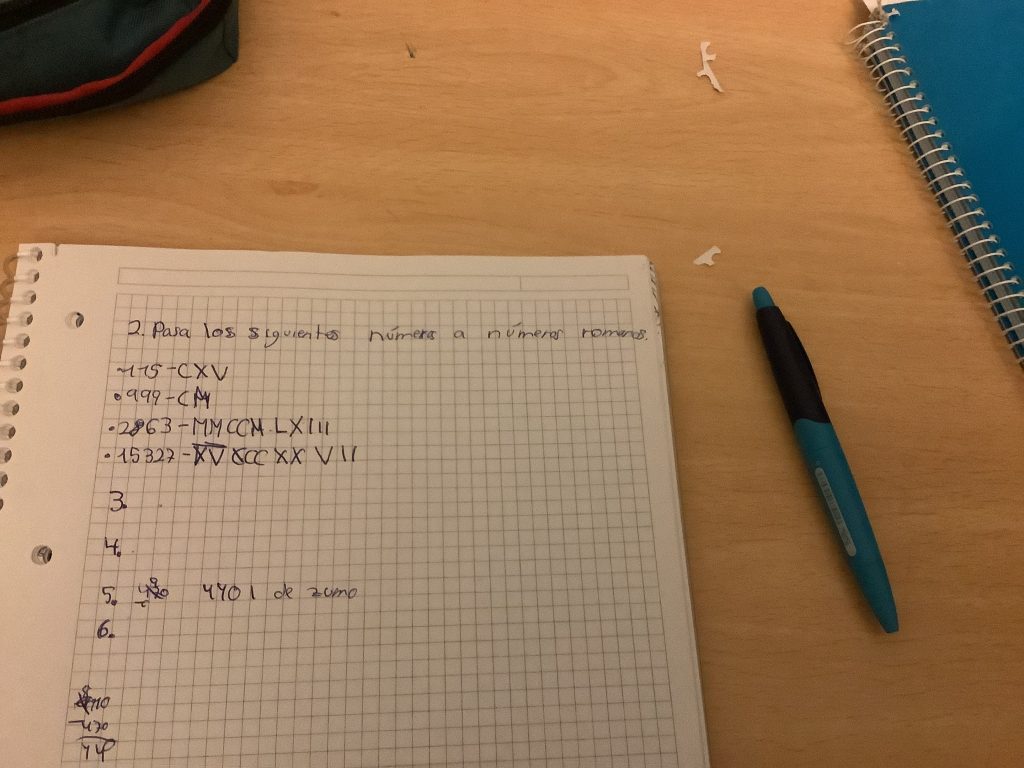 2. Pasa los siguientes números a números romanos.
-115-CXV
•999-CM
•2863-MMCCM LXIII
•15327-XV CCC XX VII
3.
4.
5. 4401 de zumo
6.